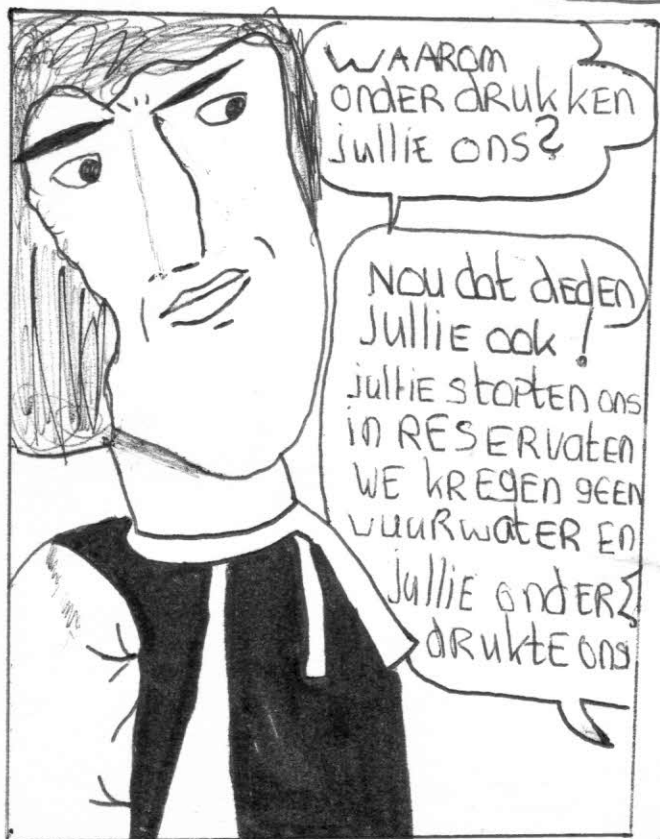 WAAROM
ONDER DRUKKEN
jullie ONS?
NOU dat dEDEN
JulliE ook!
jullie stopten ons
in RESERVATEN
WE KREGEN GEEN
VUURWATER EN
jullie ONDER
DRUKTE ONS